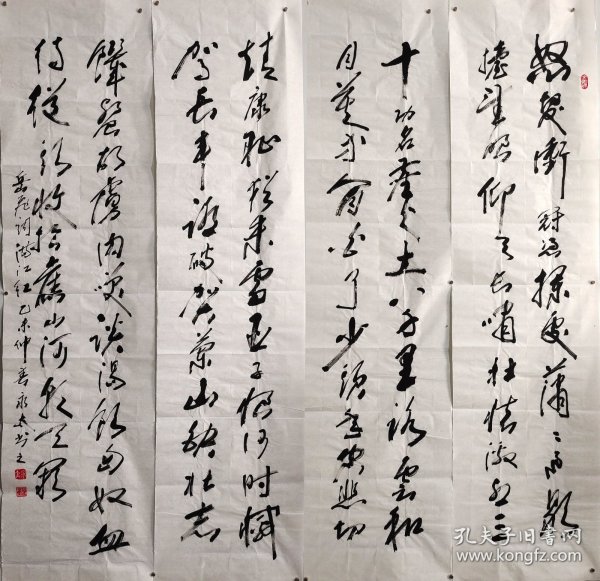 怒发冲冠凭栏处潇潇雨歇
抬望眼仰天长啸壮怀激烈三
十功名尘与土八千里路云和
月莫等闲白了少年头空悲切
靖康耻犹未雪臣子恨何时憾
驾长车踏破贺兰山缺壮志
饥餐胡虏肉笑谈渴饮匈奴血
待从头收拾旧山河朝天阙
岳飞词满江红乙未仲春
孔夫子旧书网
www.kongfz.com